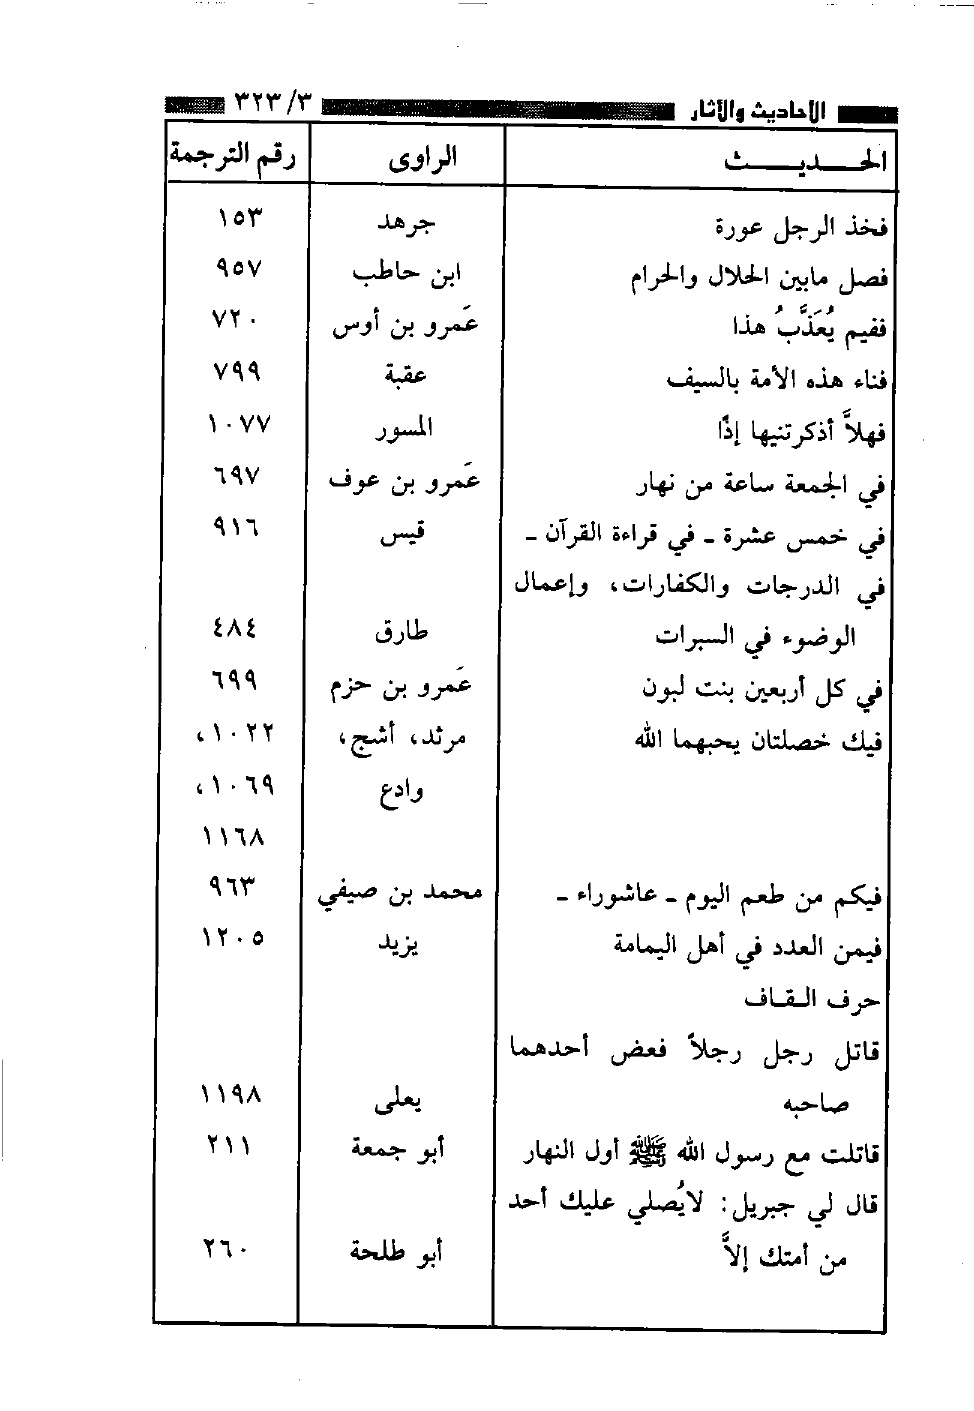 الأحاديث والآثار ٣/ ٣٢٣
الحـــديـــــث الراوى رقم الترجمة
فخذ الرجل عورة جرهد ١٥٣
فصل مابين الحلال والحرام ابن حاطب ٩٥٧
ففيم يُعَذَّبُ هذا عَمرو بن أوس ٧٢٠
فناء هذه الأمة بالسيف عقبة ٧٩٩
فهلاَّ أذكرتنيها إذًا المسور ١٠٧٧
في الجمعة ساعة من نهار عَمرو بن عوف ٦٩٧
في خمس عشرة ـ في قراءة القرآن ـ قيس ٩١٦
في الدرجات والكفارات، وإعمال
الوضوء في السبرات طارق ٤٨٤
في كل أربعين بنت لبون عَمرو بن حزم ٦٩٩
فيك خصلتان يحبهما الله مرثد، أشج، ١٠٢٢،
وادع ١٠٦٩،
١١٦٨
فيكم من طعم اليوم ـ عاشوراء ـ محمد بن صيفي ٩٦٣
فيمن العدد في أهل اليمامة يزيد ١٢٠٥
حرف الـقـاف
قاتل رجل رجلاً فعض أحدهما
صاحبه يعلى ١١٩٨
قاتلت مع رسول الله ﷺ أول النهار أبو جمعة ٢١١
قال لي جبريل: لايُصلي عليك أحد
من أمتك إلاَّ أبو طلحة ٢٦٠